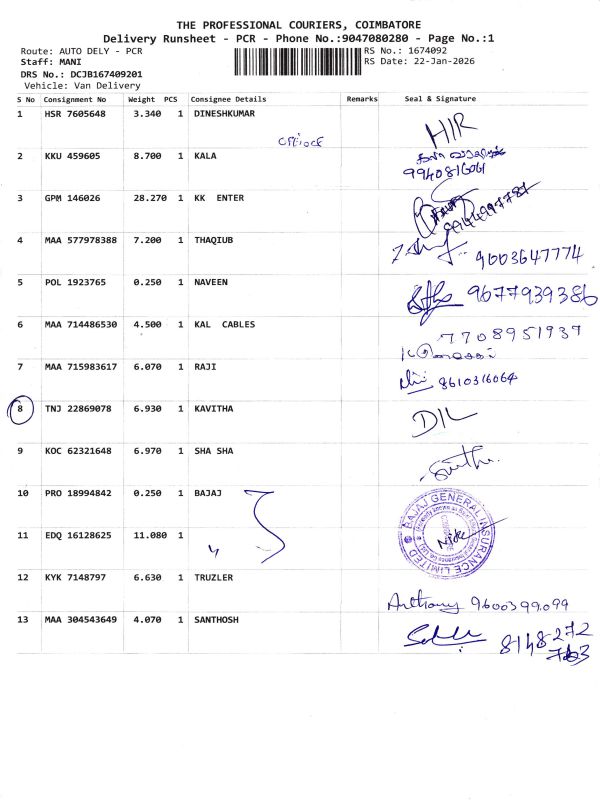 THE PROFESSIONAL COURIERS, COIMBATORE
Delivery Runsheet - PCR - Phone No.:9047080280 - Page No.:1
Route: AUTO DELY - PCR RS No.: 1674092
Staff: MANI RS Date: 22-Jan-2026
DRS No.: DCJB167409201
Vehicle: Van Delivery
S No Consignment No Weight PCS Consignee Details Remarks Seal & Signature
1 HSR 7605648 3.340 1 DINESHKUMAR H/R
2 KKU 459605 8.700 1 KALA
9940816061
3 GPM 146026 28.270 1 KK ENTER
4 MAA 577978388 7.200 1 THAQIUB 9003647774
5 POL 1923765 0.250 1 NAVEEN 9677939386
6 MAA 714486530 4.500 1 KAL CABLES 7708951937
7 MAA 715983617 6.070 1 RAJI 8610316064
8 TNJ 22869078 6.930 1 KAVITHA D/L
9 KOC 62321648 6.970 1 SHA SHA
10 PRO 18994842 0.250 1 BAJAJ BAJAJ GENERAL INSURANCE LIMITED
11 EDQ 16128625 11.080 1 〃
12 KYK 7148797 6.630 1 TRUZLER Anthony 9600399099
13 MAA 304543649 4.070 1 SANTHOSH 8148272
763